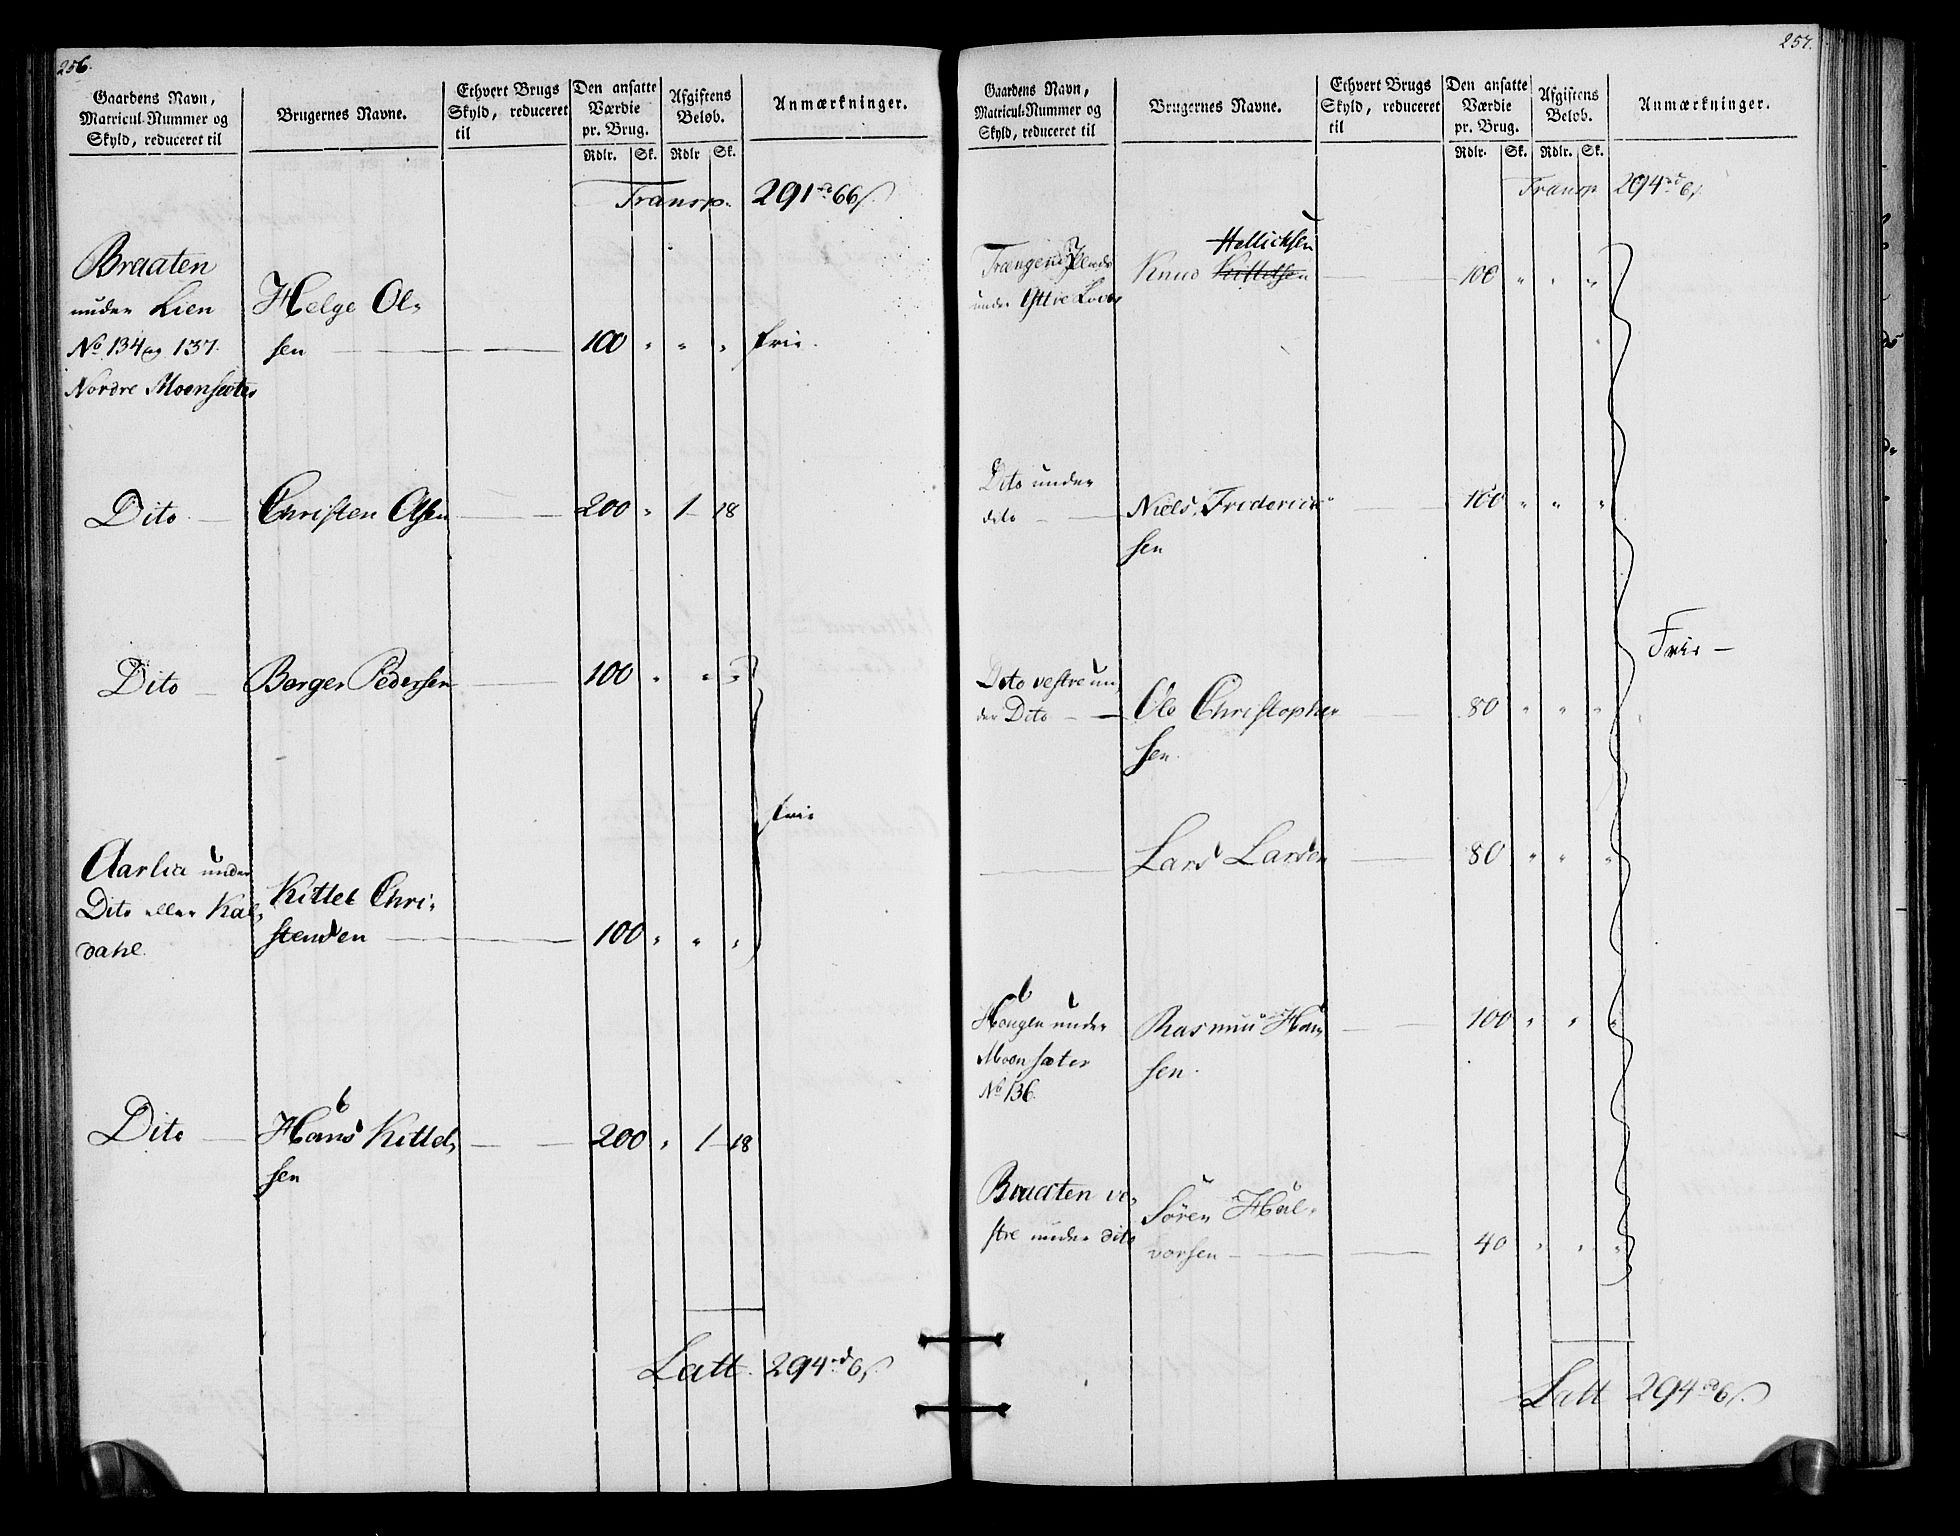 256.
Gaardens Navn,
Matricul-Nummer og
Skyld, reduceret til
Brugernes Navne.
Ethvert Brugs
Skyld, reduceret
til
Den ansatte
Værdie
pr. Brug.
Afgiftens
Beløb.
Anmærkninger.
Rdlr. Sk. Rdlr Sk.
Transp. 291 rd 66 s.
Braaten
under Lien
No 134 og 137.
Nordre Moensæter
Helge Ol-
sen 100 " " " frie.
Dito Christen Olsen 200 " 1 18
Dito Borger Pedersen 100 " " "
frie
Aarlia under
Dito eller Kal-
dahl.
Kittel Chri-
stensen 100 " " "
Dito Hans Kittel-
sen 200 " 1 18
Latt. 294 rd 6 s.
257.
Gaardens Navn,
Matricul-Nummer og
Skyld, reduceret til
Brugernes Navne.
Ethvert Brugs
Skyld, reduceret
til
Den ansatte
Værdie
pr. Brug.
Afgiftens
Beløb.
Anmærkninger.
Rdlr. Sk. Rdlr. Sk.
Transp 294 rd 6 s.
Hellichsen
Trængens Plads Knud Kittelsen 100 " " "
under
Dito under
dito Niels Frederick-
sen 100 " " "
Frie
Dito vestre un-
der Dito Ole Christopher-
sen. 80 " " "
Lars Larsen 80 " " "
Hougen under
Moensæter
No 136.
Rasmus Han-
sen. 100 " " "
Braaten ve-
stre under dito
Sören Hal-
vorsen 40 " " "
Latt 294 rd 6 s.